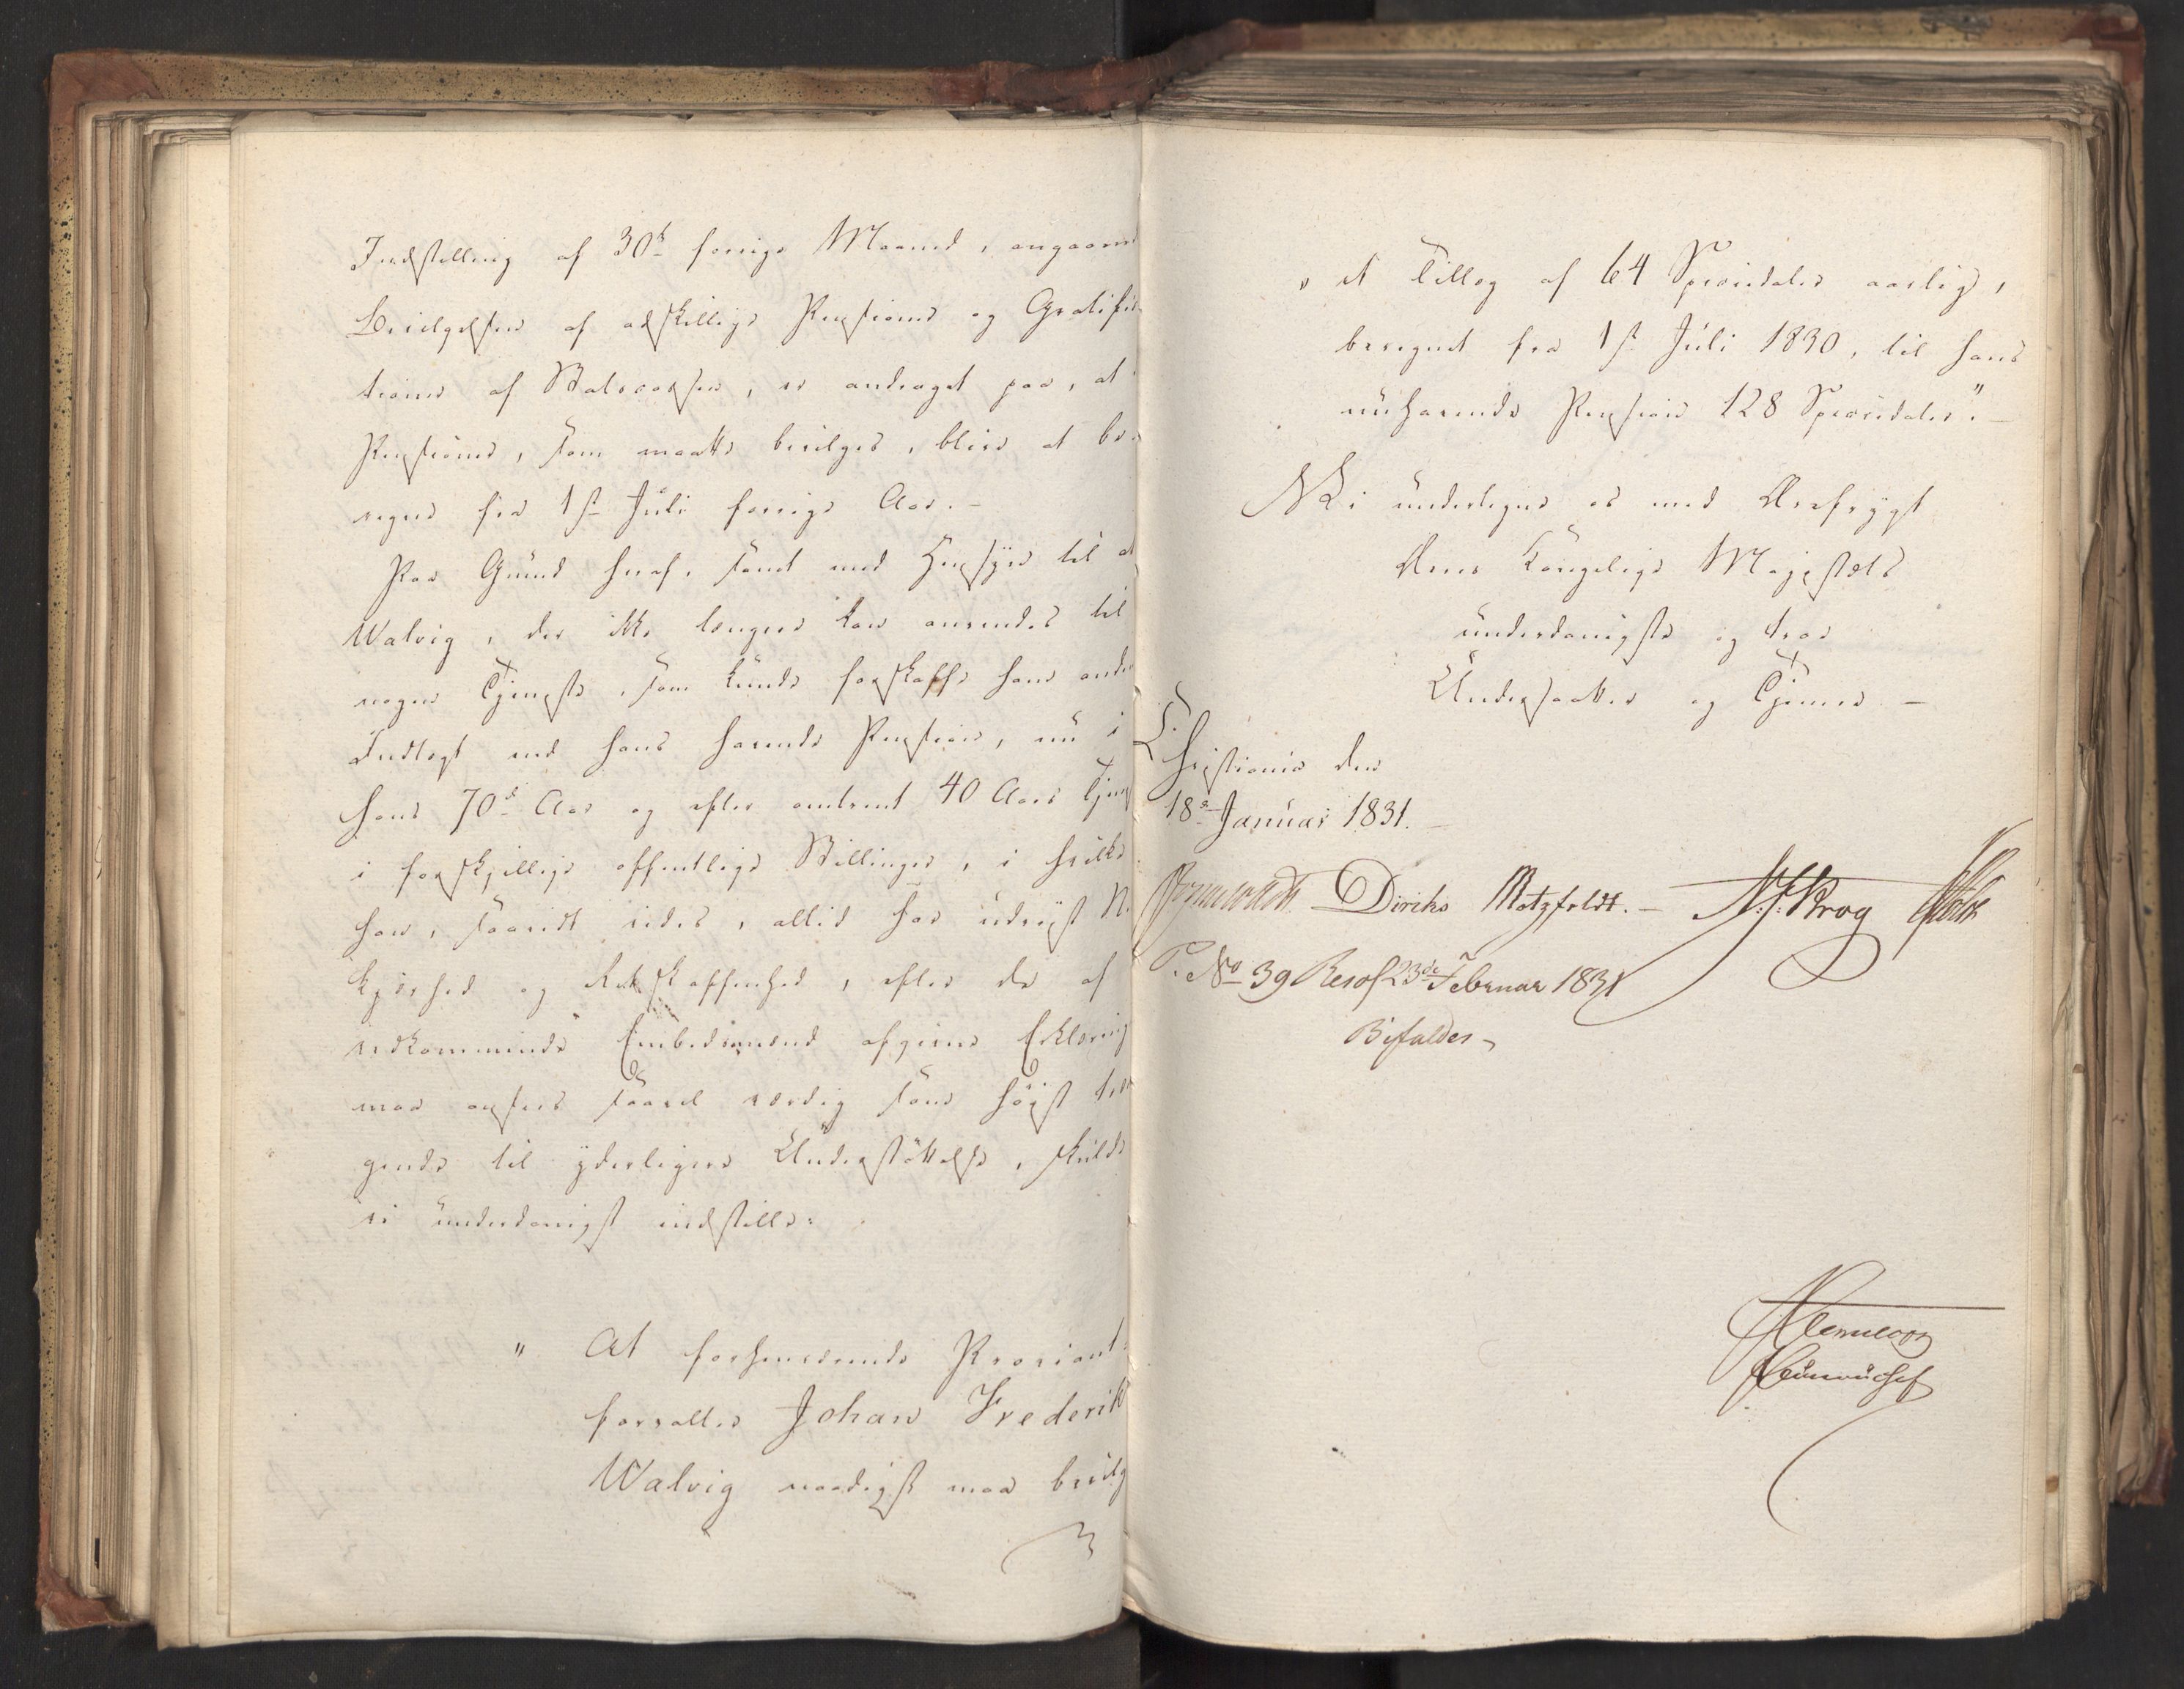 Indstilling af 30te forrige Maaned, angaaend
Bevilgelsen af adskillige Pensioner og Gratifica-
tioner af Statscassen, er andraget paa, at
Pensioner, som maatte bevilges, blive at be-
regne fra 1ste Juli forrige Aar.-
Paa Grund heraf, samt med Hensyn til at
Walvig, der ikke længere kan anvendes til
nogen Tjeneste, som kunde forskaffe ham anden
Indtægt end hans havende Pension, nu i
hans 70de Aar og efter omtrent 40 Aars Tjen
i forskjellige offentlige Stillinger, i hvilke
han, saavidt vides, altid har udviist
kjærhed og Retskaffenhed, efter de af
vedkommende Embedsmænd afgivne Erklæring
maa ansees saavel værdig som høist træn
gende til yderligere Understøttelse, skulde
vi underdanigst indstille:
" At forhenværende Proviant-
forvalter Johan Frederik
Walvig naadigst maa bevilg
" et Tillæg af 64 Speciedaler aarlig,
beregnet fra 1ste Juli 1830, til hans
nuhavende Pension 128 Speciedaler".-
Vi undertegne os med Ærefrygt
Deres Kongelige Majestæts
underdanigste og troe
Undersaatter og Tjenere.-
Christiania den
18de Januar 1831.-
Diriks Motzfeldt.- N.J. Krog Holst
P. No 39 Resol 23de Februar 1831
Bifaldes-